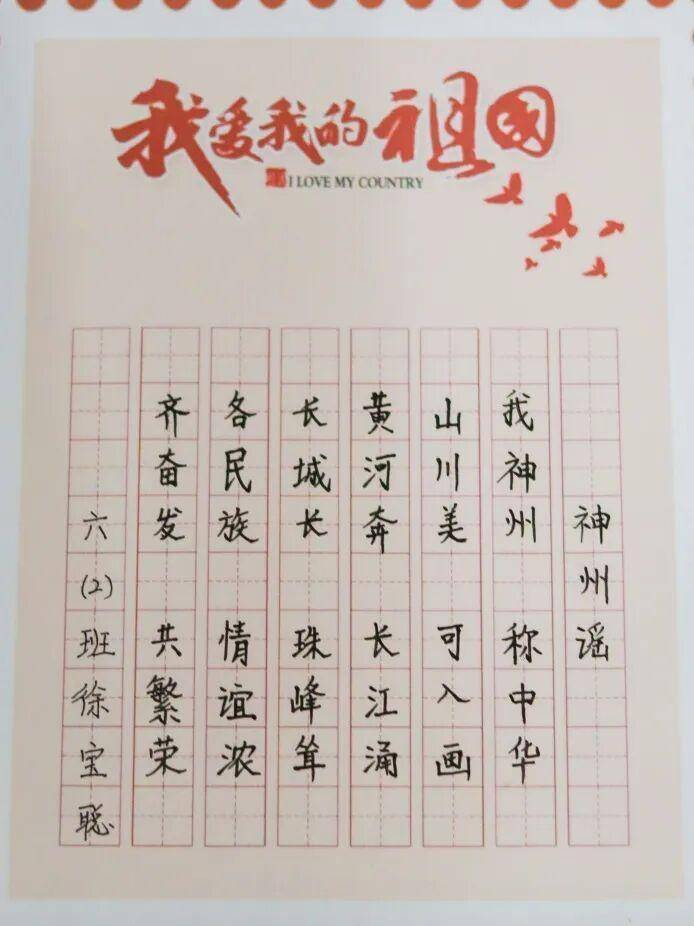 我爱我的祖国
I LOVE MY COUNTRY
神州谣
我神州 称中华
山川美 可入画
黄河奔 长江涌
长城长 珠峰耸
各民族 情谊浓
齐奋发 共繁荣
六(2)班徐宝聪